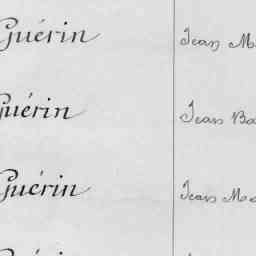 Guérin Jean M
Guérin Jean Ba
Guérin Jean Ma